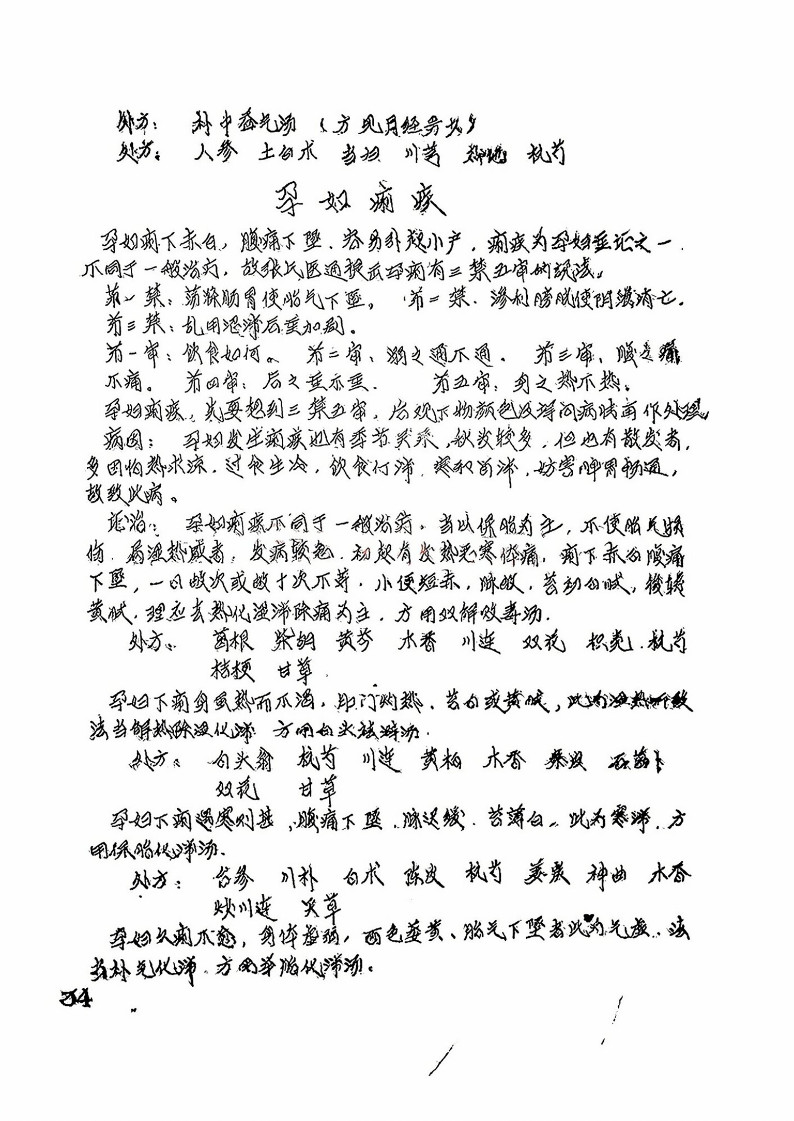 处方： 补中益气汤 （方见月经
处方： 人参 土白术 当归 川芎 杭芍
孕妇痢疾
孕妇痢下赤白，腹痛下坠，容易引起小产，痢疾为孕妇重症之一，
不同于一般治疗，故张氏医通提示孕痢有三禁五审的说法。
第一禁：荡涤肠胃使胎气下坠。 第二禁：渗利膀胱使阴津消亡。
第三禁：乱用涩滞后重加剧。
第一审：饮食如何。 第二审：溺之通不通。 第三审：腹之痛
不痛。 第四审：后之重不重。 第五审：身之热不热。
孕妇痢疾，先要想到三禁五审，后观下物颜色及详问病情再作处理。
病因： 孕妇发生痢疾也有季节关系，秋发较多，但也有散发者，
多因怕热求凉，过食生冷，饮食停滞，寒积而滞，妨害脾胃畅通，
故致此病。
论治： 孕妇痢疾不同于一般治疗，当以保胎为主，不使胎气损
伤。属湿热盛者，发病较急，初起有发热恶寒体痛，痢下赤白腹痛
下坠，一日数次或数十次不等，小便短赤，脉数，苔初白腻，后转
黄腻，理应去热化湿滞除痛为主，方用双解败毒汤。
处方： 葛根 柴胡 黄芩 木香 川连 双花 枳壳 杭芍
桔梗 甘草
孕妇下痢身虽热而不渴，肛门灼热，苔白或黄腻，此为湿热所致
法当解热除湿化滞 方用白头翁汤。
处方： 白头翁 杭芍 川连 黄柏 木香 秦皮
双花 甘草
孕妇下痢遇寒则甚，腹痛下坠，脉迟缓，苔薄白，此为寒滞，方
用保胎化滞汤。
处方： 台参 川朴 白术 陈皮 杭芍 姜炭 神曲 木香
炒川连 炙草
孕妇久痢不愈，身体虚弱，面色萎黄、胎气下坠者此为气虚，法
当补气化滞，方用举胎化滞汤。
34